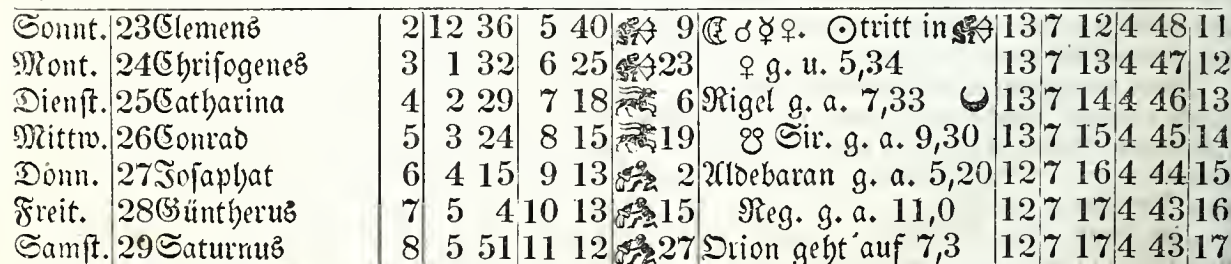 Sonnt. 23 Clemens 2 12 36 5 40 ♐ 9 ☾ ☌ ☿ ♀. ☉ tritt in ♐ 13 7 12 4 48 11
Mont. 24 Chrisogenes 3 1 32 6 25 ♐ 23 ♀ g. u. 5,34 13 7 13 4 47 12
Dienst. 25 Catharina 4 2 29 7 18 ♑ 6 Rigel g. a. 7,33 13 7 14 4 46 13
Mittw. 26 Conrad 5 3 24 8 15 ♑ 19 ☋ Sir. g. a. 9,30 13 7 15 4 45 14
Donn. 27 Josaphat 6 4 15 9 13 ♒ 2 Aldebaran g. a. 5,20 12 7 16 4 44 15
Freit. 28 Güntherus 7 5 4 10 13 ♒ 15 Reg. g. a. 11,0 12 7 17 4 43 16
Samst. 29 Saturnus 8 5 51 11 12 ♒ 27 Orion geht auf 7,3 12 7 17 4 43 17